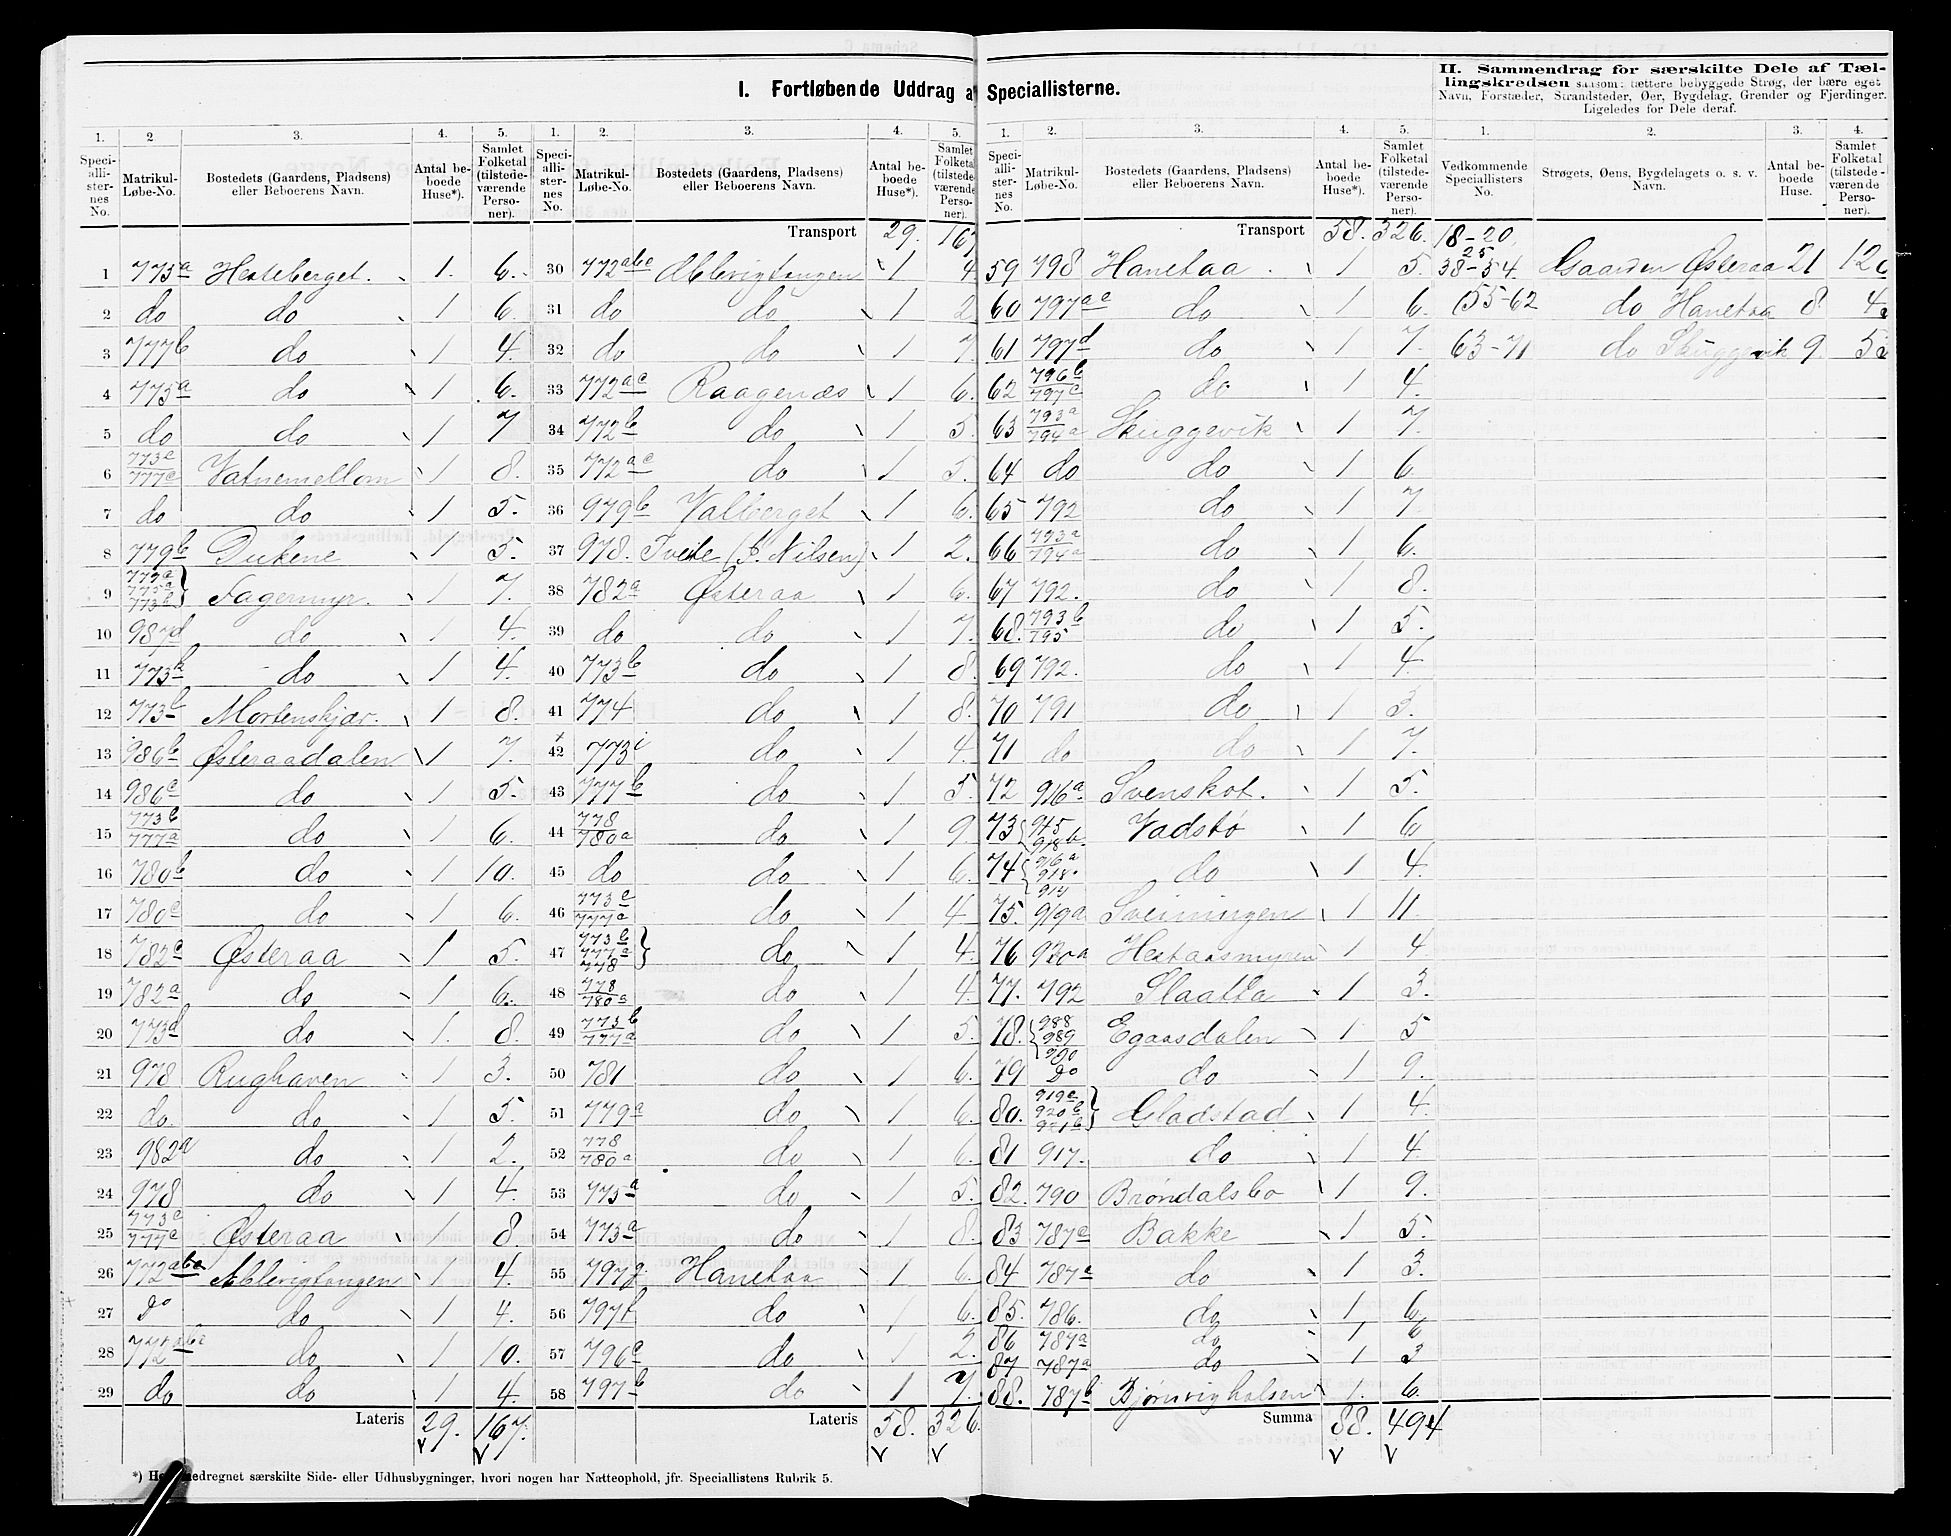 I. Fortløbende Uddrag af Speciallisterne.
II. Sammendrag for særskilte Dele af Tællingskredsen saasom: tættere bebyggede Strøg, der bære eget Navn, Forstæder, Strandsteder, Øer, Bygdelag, Grender og Fjerdinger. Ligeledes for Dele deraf.
1. 2 3. 4. 5.
Speciallisternes No. Matrikul-Løbe-No. Bostedets (Gaardens, Pladsens) eller Beboerens Navn. Antal beboede Huse*). Samlet Folketal (tilstedeværende Personer).
1 775a Hesteberget. 1. 6.
2 do do 1 6.
3 777b do 1 4.
4 775a do 1 6.
5 do do 1 7
6 773c/777c Vatnemellom 1 8.
7 do do 1 5.
8 779b Dukene 1 5.
9 Fagermyr. 1 7.
10 987d do 1 4.
11 773h do 1 4.
12 773b Mortenskjær. 1 8.
13 986b Østeraadalen 1 7.
14 986c do 1 5.
15 773b/777a do 1 6.
16 780b do 1 10.
17 780c do 1 6.
18 782c Østeraa 1 5.
19 782a do 1 6.
20 773d do 1. 8.
21 978 Rughaven 1 3.
22 do. do 1 5.
23 982a do 1 2.
24 978 do 1 4.
25 773c/777c Østeraa 1 8.
26 772abc Ablevigtangen 1 4.
27 Do do 1 4.
28 772abc do 1 10.
29 do do 1 4.
Lateris 29. 167.
1. 2. 3. 4. 5.
Speciallisternes No. Matrikul-Løbe-No. Bostedets (Gaardens, Pladsens) eller Beboerens Navn. Antal beboede Huse*). Samlet Folketal (tilstedeværende Personer).
Transport 29. 167
30 772abc Ablevigtangen 1 4
31 do do 1 2
32 do do 1 7
33 772ac Raagenæs 1 6.
34 772b do 1 5.
35 772ac do 1 5.
36 979b Valberget 1 6.
37 978. Tveite (J. Nilsen) 1 2.
38 782a Østeraa 1 6.
39 do do 1 7.
40 773b do 1 8.
41 774 do 1 8.
42 773i do 1 4.
43 777b do 1 5.
44 778/780a do 1 9.
45 do do 1 6.
46 773c/777a do 1 4
47 773b 777a 778 } do 1 4.
48 778/780a do 1 4.
49 773b/777a do 1 5.
50 781 do 1 6.
51 779a do 1 6.
52 778/780a do 1 6.
53 775a do 1 5.
54 773a do 1 8.
55 797g. Hanetaa 1 6.
56 797f do 1 6.
57 796c do 1 2.
58 797b do 1 7.
Lateris 58. 326.
1. 2. 3. 4. 5.
Speciallisternes No. Matrikul-Løbe-No. Bostedets (Gaardens, Pladsens) eller Beboerens Navn. Antal beboede Huse*). Samlet Folketal (tilstedeværende Personer).
Transport 58. 326.
59 798 Hanetaa. 1 5.
60 797ae do 1 6.
61 797d do 1 7.
62 796b/797c do 1 4.
63 793a/794a Skuggevik 1 7.
64 do do 1 6.
65 792 do 1 7.
66 793a/794a do 1 6.
67 792. do 1 8.
68. 793b/795 do 1 5.
69 792. do 1 4.
70 791 do 1 3.
71 do do 1 7.
72 916a Svenskot. 1 5.
73 915 918b Vadsbo 1 6
74 do 1 4.
75. 919a Sveiningen 1 11.
76 920a Hestaasmyren 1 4.
77. 792 Slaatta 1 3.
78. 988 989 990 Egaasdalen 1 5
79 Do do 1 9.
80. 919c 920b 921b } Gladstad 1 4.
81 917. do 1 4.
82. 790 Brøndalsbo 1 9.
83 787c Bakke 1 5.
84 787c do 1 3.
85. 786. do 1 6.
86 787a do 1 6
87 787a do 1 3
88. 787b Bjørnvigholsen 1. 6.
Summa 88. 494
1. 2. 3. 4.
Vedkommende Speciallisters No. Strøgets, Øens, Bygdelagets o. s. v. Navn. Antal beboede Huse. Samlet Folketal (tilstedeværende Personer).
18-20.
25
38-54. Gaarden Østeraa 21 12
55-62 do Hanetaa 8. 4
63-71 do Skuggevik 9. 5
*) Heri medregnet særskilte Side- eller Udhusbygninger, hvori nogen har Natteophold, jfr. Speciallistens Rubrik 5.